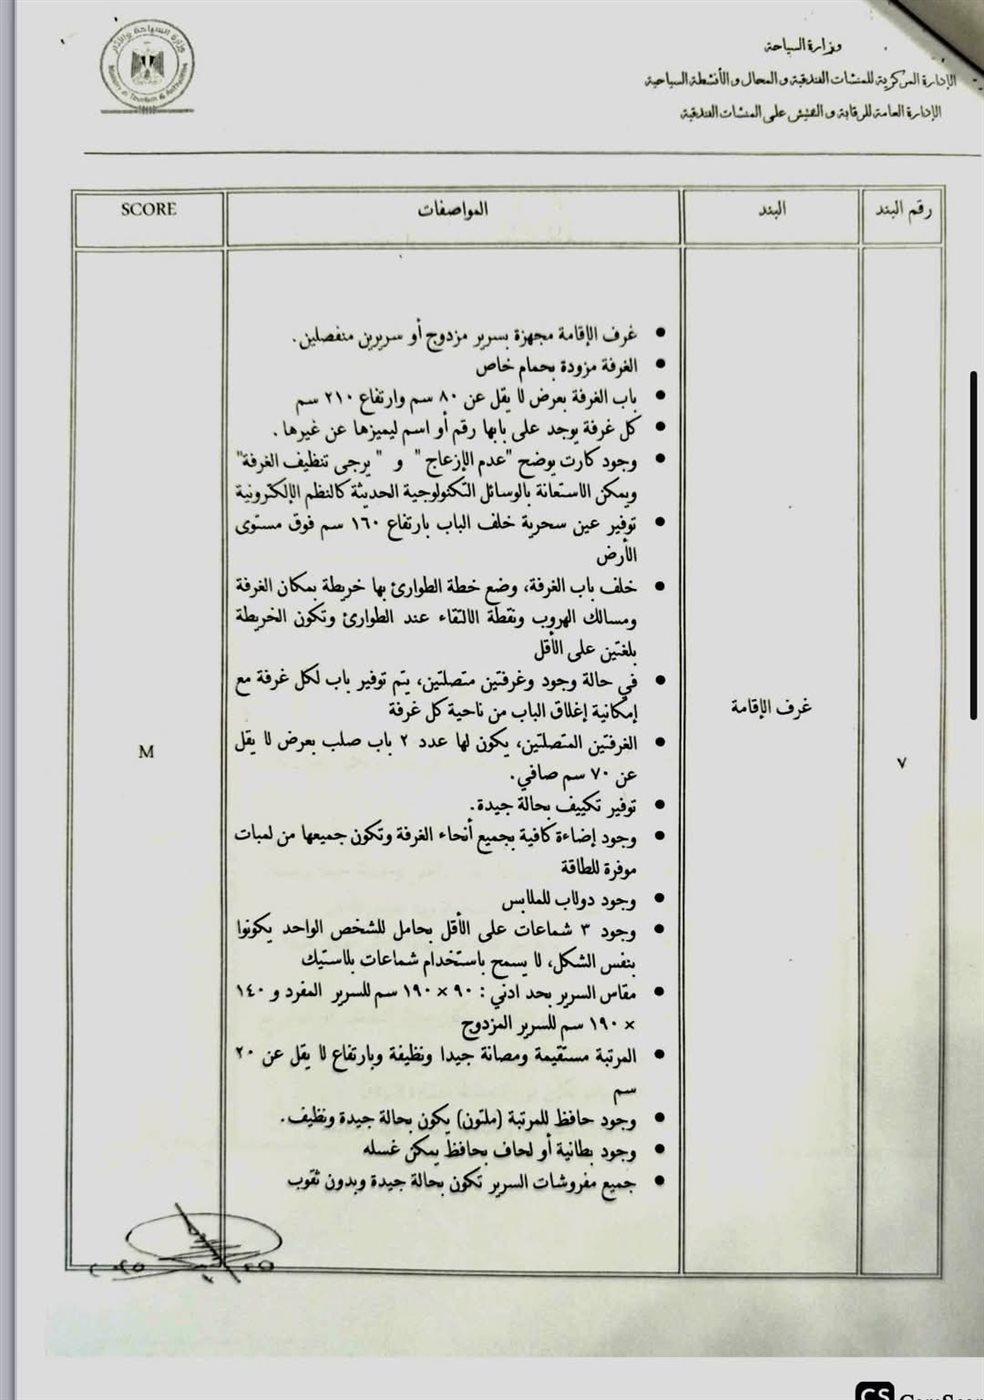 وزارة السياحة
الإدارة المركزية للمنشآت الفندقية و المحال و الأنشطة السياحية
الإدارة العامة للرقابة و التفتيش على المنشآت الفندقية
وزارة السياحة والآثار
Ministry of Tourism & Antiquities
رقم البند
البند
المواصفات
SCORE
٧
غرف الإقامة
M
● غرف الإقامة مجهزة بسرير مزدوج أو سريرين منفصلين.
● الغرفة مزودة بحمام خاص
● باب الغرفة بعرض لا يقل عن ٨٠ سم وارتفاع ٢١٠ سم
● كل غرفة يوجد على بابها رقم أو اسم ليميزها عن غيرها .
● وجود كارت يوضح "عدم الإزعاج " و " يرجى تنظيف الغرفة"
ويمكن الاستعانة بالوسائل التكنولوجية الحديثة كالنظم الإلكترونية
● توفير عين سحرية خلف الباب بارتفاع ١٦٠ سم فوق مستوى
الأرض
● خلف باب الغرفة، وضع خطة الطوارئ بها خريطة بمكان الغرفة
ومسالك الهروب ونقطة الالتقاء عند الطوارئ وتكون الخريطة
بلغتين على الأقل
● في حالة وجود وغرفتين متصلتين، يتم توفير باب لكل غرفة مع
إمكانية إغلاق الباب من ناحية كل غرفة
● الغرفتين المتصلتين، يكون لها عدد ٢ باب صلب بعرض لا يقل
عن ٧٠ سم صافي.
● توفير تكييف بحالة جيدة.
● وجود إضاءة كافية بجميع أنحاء الغرفة وتكون جميعها من لمبات
موفرة للطاقة
● وجود دولاب للملابس
● وجود ٣ شماعات على الأقل بحامل للشخص الواحد يكونوا
بنفس الشكل، لا يسمح باستخدام شماعات بلاستيك
● مقاس السرير بحد ادني : ٩٠ × ١٩٠ سم للسرير المفرد و ١٤٠
× ١٩٠ سم للسرير المزدوج
● المرتبة مستقيمة ومصانة جيدا ونظيفة وبارتفاع لا يقل عن ٢٠
سم
● وجود حافظ للمرتبة (ملتون) يكون بحالة جيدة ونظيف.
● وجود بطانية أو لحاف بحافظ يمكن غسله
● جميع مفروشات السرير تكون بحالة جيدة وبدون ثقوب
CS